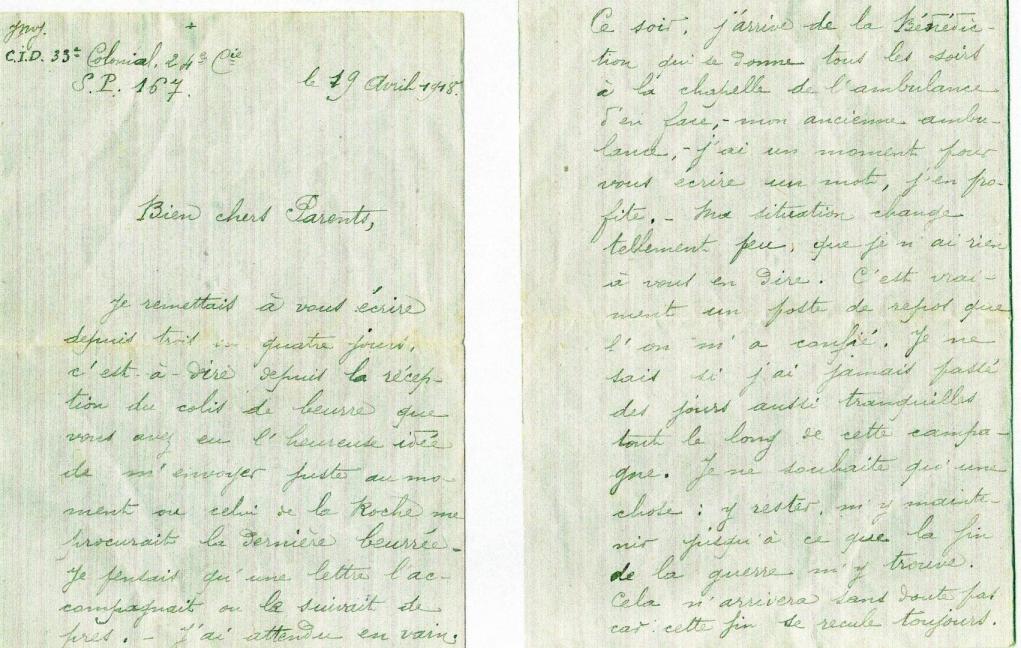 +
C.I.D. 33e Colonial, 243e Cie
S.P. 167.
le 19 Avril 1918.
Bien chers Parents,
Je remettais à vous écrire
depuis trois ou quatre jours,
c'est-à-dire depuis la récep-
tion du colis de beurre que
vous avez eu l'heureuse idée
de m'envoyer juste au mo-
ment ou celui de la Roche me
procurait la dernière beurrée.
Je pensais qu'une lettre l'ac-
compagnait ou la suivait de
près. - J'ai attendu en vain.
Ce soir, j'arrive de la Bénédic-
tion qui se donne tous les soirs
à la chapelle de l'ambulance
d'en face, - mon ancienne ambu-
lance, - j'ai un moment pour
vous écrire un mot, j'en pro-
fite. - Ma situation change
tellement peu, que je n'ai rien
à vous en dire. C'est vrai-
ment un poste de repos que
l'on m'a confié. Je ne
sais si j'ai jamais passé
des jours aussi tranquilles
tout le long de cette campa-
gne. Je ne souhaite qu'une
chose : y rester, m'y mainte-
nir jusqu'à ce que la fin
de la guerre m'y trouve.
Cela n'arrivera sans doute pas
car cette fin se recule toujours.